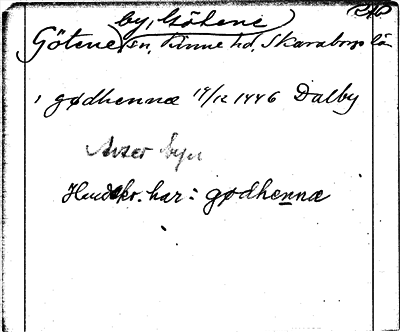 by, Götene
Götene sn, Kinne hd, Skaraborgs län
i gødhennæ 19/12 1446 Dalby
Avser byn
Handskr. har: gødhennæ